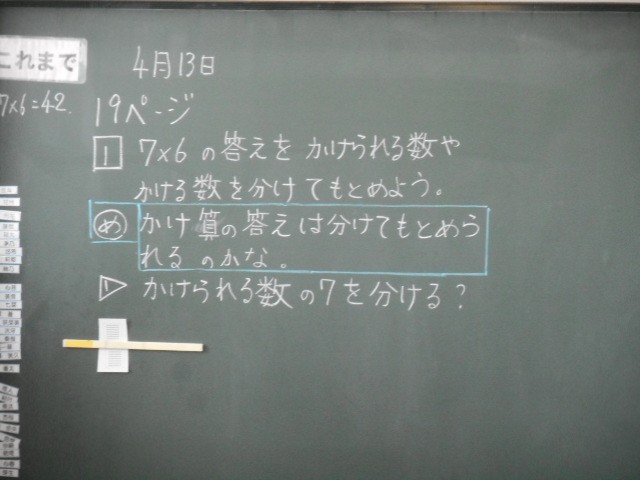 これまで
7×6=42.
4月13日
19ページ
1 7×6の答えをかけられる数や
かける数を分けてもとめよう。
め かけ算の答えは分けてもとめら
れるのかな。
1 かけられる数の7を分ける?